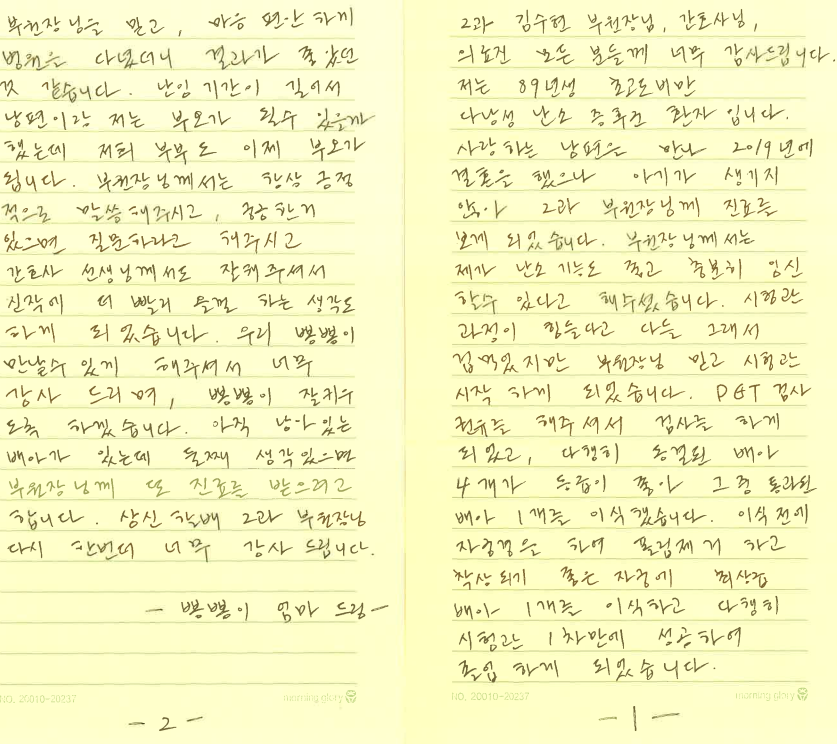 2과 김수현 부원장님, 간호사님,
의료진 모든 분들께 너무 감사드립니다.
저는 89년생 초고도비만
다낭성 난소 증후군 환자 입니다.
사랑하는 남편을 만나 2019년에
결혼을 했으나 아기가 생기지
않아 2과 부원장님께 진료를
보게 되었습니다. 부원장님께서는
제가 난소 기능도 좋고 충분히 임신
할수 있다고 해주셨습니다. 시험관
과정이 힘들다고 다들 그래서
겁먹었지만 부원장님 믿고 시험관
시작 하게 되었습니다. PGT 검사
권유를 해주셔서 검사를 하게
되었고, 다행히 동결된 배아
4개가 등급이 좋아 그중 통과된
배아 1개를 이식했습니다. 이식전에
자궁경을 하여 폴립제거 하고
착상되기 좋은 자궁에 최상급
배아 1개를 이식하고 다행히
시험관 1차만에 성공하여
졸업 하게 되었습니다.
NO. 20010-20237 morning glory
-1-
부원장님을 믿고, 마음 편안하게
병원을 다녔더니 결과가 좋았던
것 같습니다. 난임 기간이 길어서
남편이랑 저는 부모가 될수 있을까
했는데 저희 부부도 이제 부모가
됩니다. 부원장님께서는 항상 긍정
적으로 말씀해주시고, 궁금한거
있으면 질문하라고 해주시고
간호사 선생님께서도 잘해주셔서
신작에 더 빨리 올껄 하는 생각도
하게 되었습니다. 우리 뽕뽕이
만날수 있게 해주셔서 너무
감사 드리며, 뽕뽕이 잘키우
도록 하겠습니다. 아직 남아있는
배아가 있는데 둘째 생각있으면
부원장님께 또 진료를 받으려고
합니다. 삼신 할배 2과 부원장님
다시 한번더 너무 감사 드립니다.
- 뽕뽕이 엄마 드림 -
NO. 20010-20237 morning glory
-2-